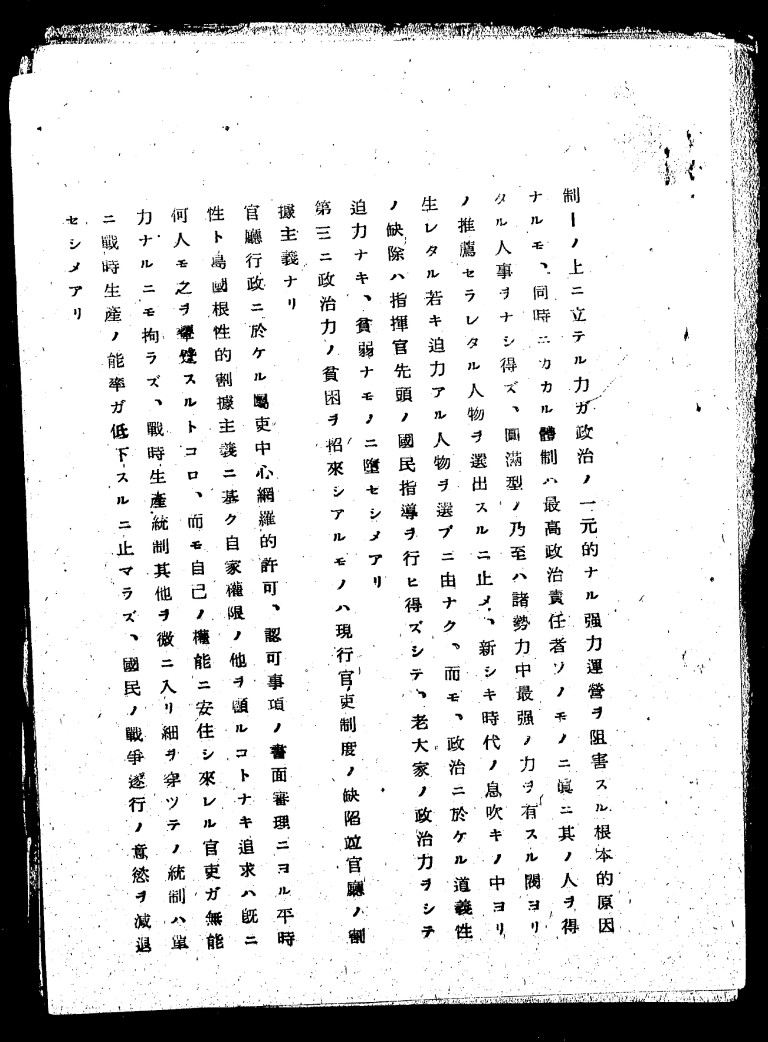 制ーノ上ニ立テル力ガ政治ノ一元的ナル强力運營ヲ阻害スル根本的原因
ナルモ、同時ニカカル體制ハ最高政治責任者ソノモノニ眞ニ其ノ人ヲ得
タル人事ヲナシ得ズ、圓滿型ノ乃至ハ諸勢力中最强ノ力ヲ有スル閥ヨリ
ノ推薦セラレタル人物ヲ選出スルニ止メ、新シキ時代ノ息吹キノ中ヨリ
生レタル若キ迫力アル人物ヲ選ブニ由ナク、而モ、政治ニ於ケル道義性
ノ缺除ハ指揮官先頭ノ國民指導ヲ行ヒ得ズシテ、老大家ノ政治力ヲシテ
迫力ナキ、貧弱ナモノニ墮セシメアリ
第三ニ政治力ノ貧困ヲ招來シアルモノハ現行官吏制度ノ缺陷竝官廳ノ割
據主義ナリ
官廳行政ニ於ケル屬吏中心網羅的許可、認可事項ノ書面審理ニヨル平時
性ト島國根性的割據主義ニ基ク自家權限ノ他ヲ顧ルコトナキ追求ハ既ニ
何人モ之ヲスルトコロ、而モ自己ノ權能ニ安住シ來レル官吏ガ無能
力ナルニモ拘ラズ、戰時生產統制其他ヲ微ニ入リ細ヲ穿ツテノ統制ハ單
ニ戰時生產ノ能率ガ低下スルニ止マラズ、國民ノ戰爭遂行ノ意慾ヲ減退
セシメアリ